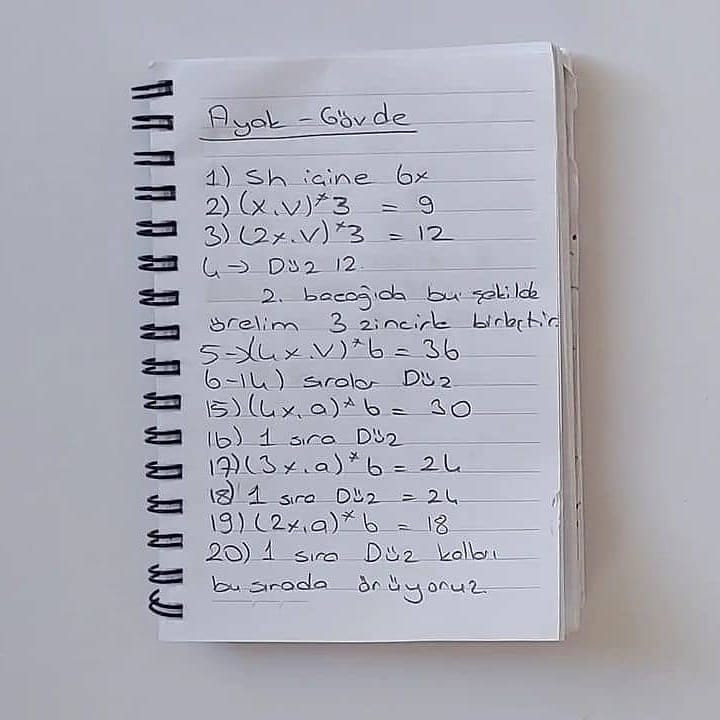 Ayak - Gövde
1) Sh içine 6x
2) (x.V)*3 = 9
3) (2x.V)*3 = 12
4 → Düz 12.
2. bacağıda bu şekilde
örelim 3 zincirle birleştir.
5→ (4x.V)*6 = 36
6-14) sıralar Düz
15) (4x.a)*6 = 30
16) 1 sıra Düz
17) (3x.a)*6 = 24
18) 1 sıra Düz = 24
19) (2x.a)*6 = 18
20) 1 sıra Düz kolları
bu sırada örüyoruz.